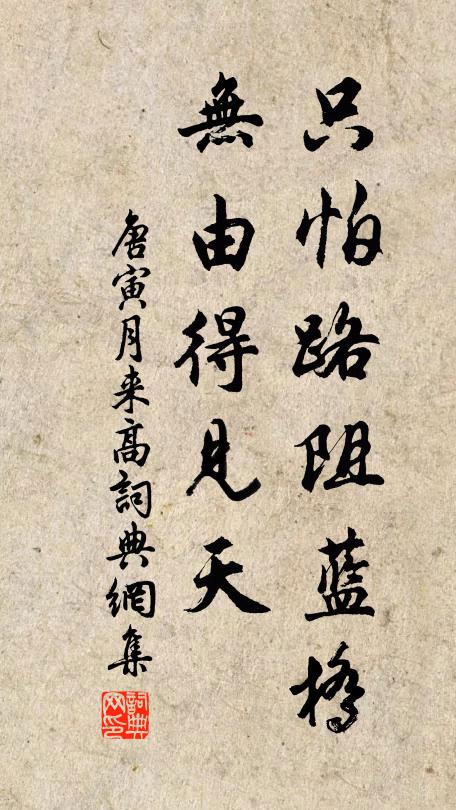 只怕路阻藍橋
無由得見天
唐寅月来高詞典網集
詞典网印